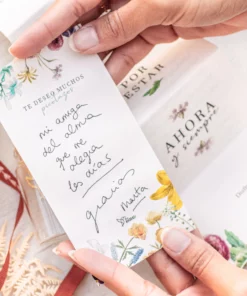 TE DESEO MUCHOS
mi amiga
del alma
que me
alegra
los días
gracias
Marta
POR
ESTAR
AHORA
y siempre